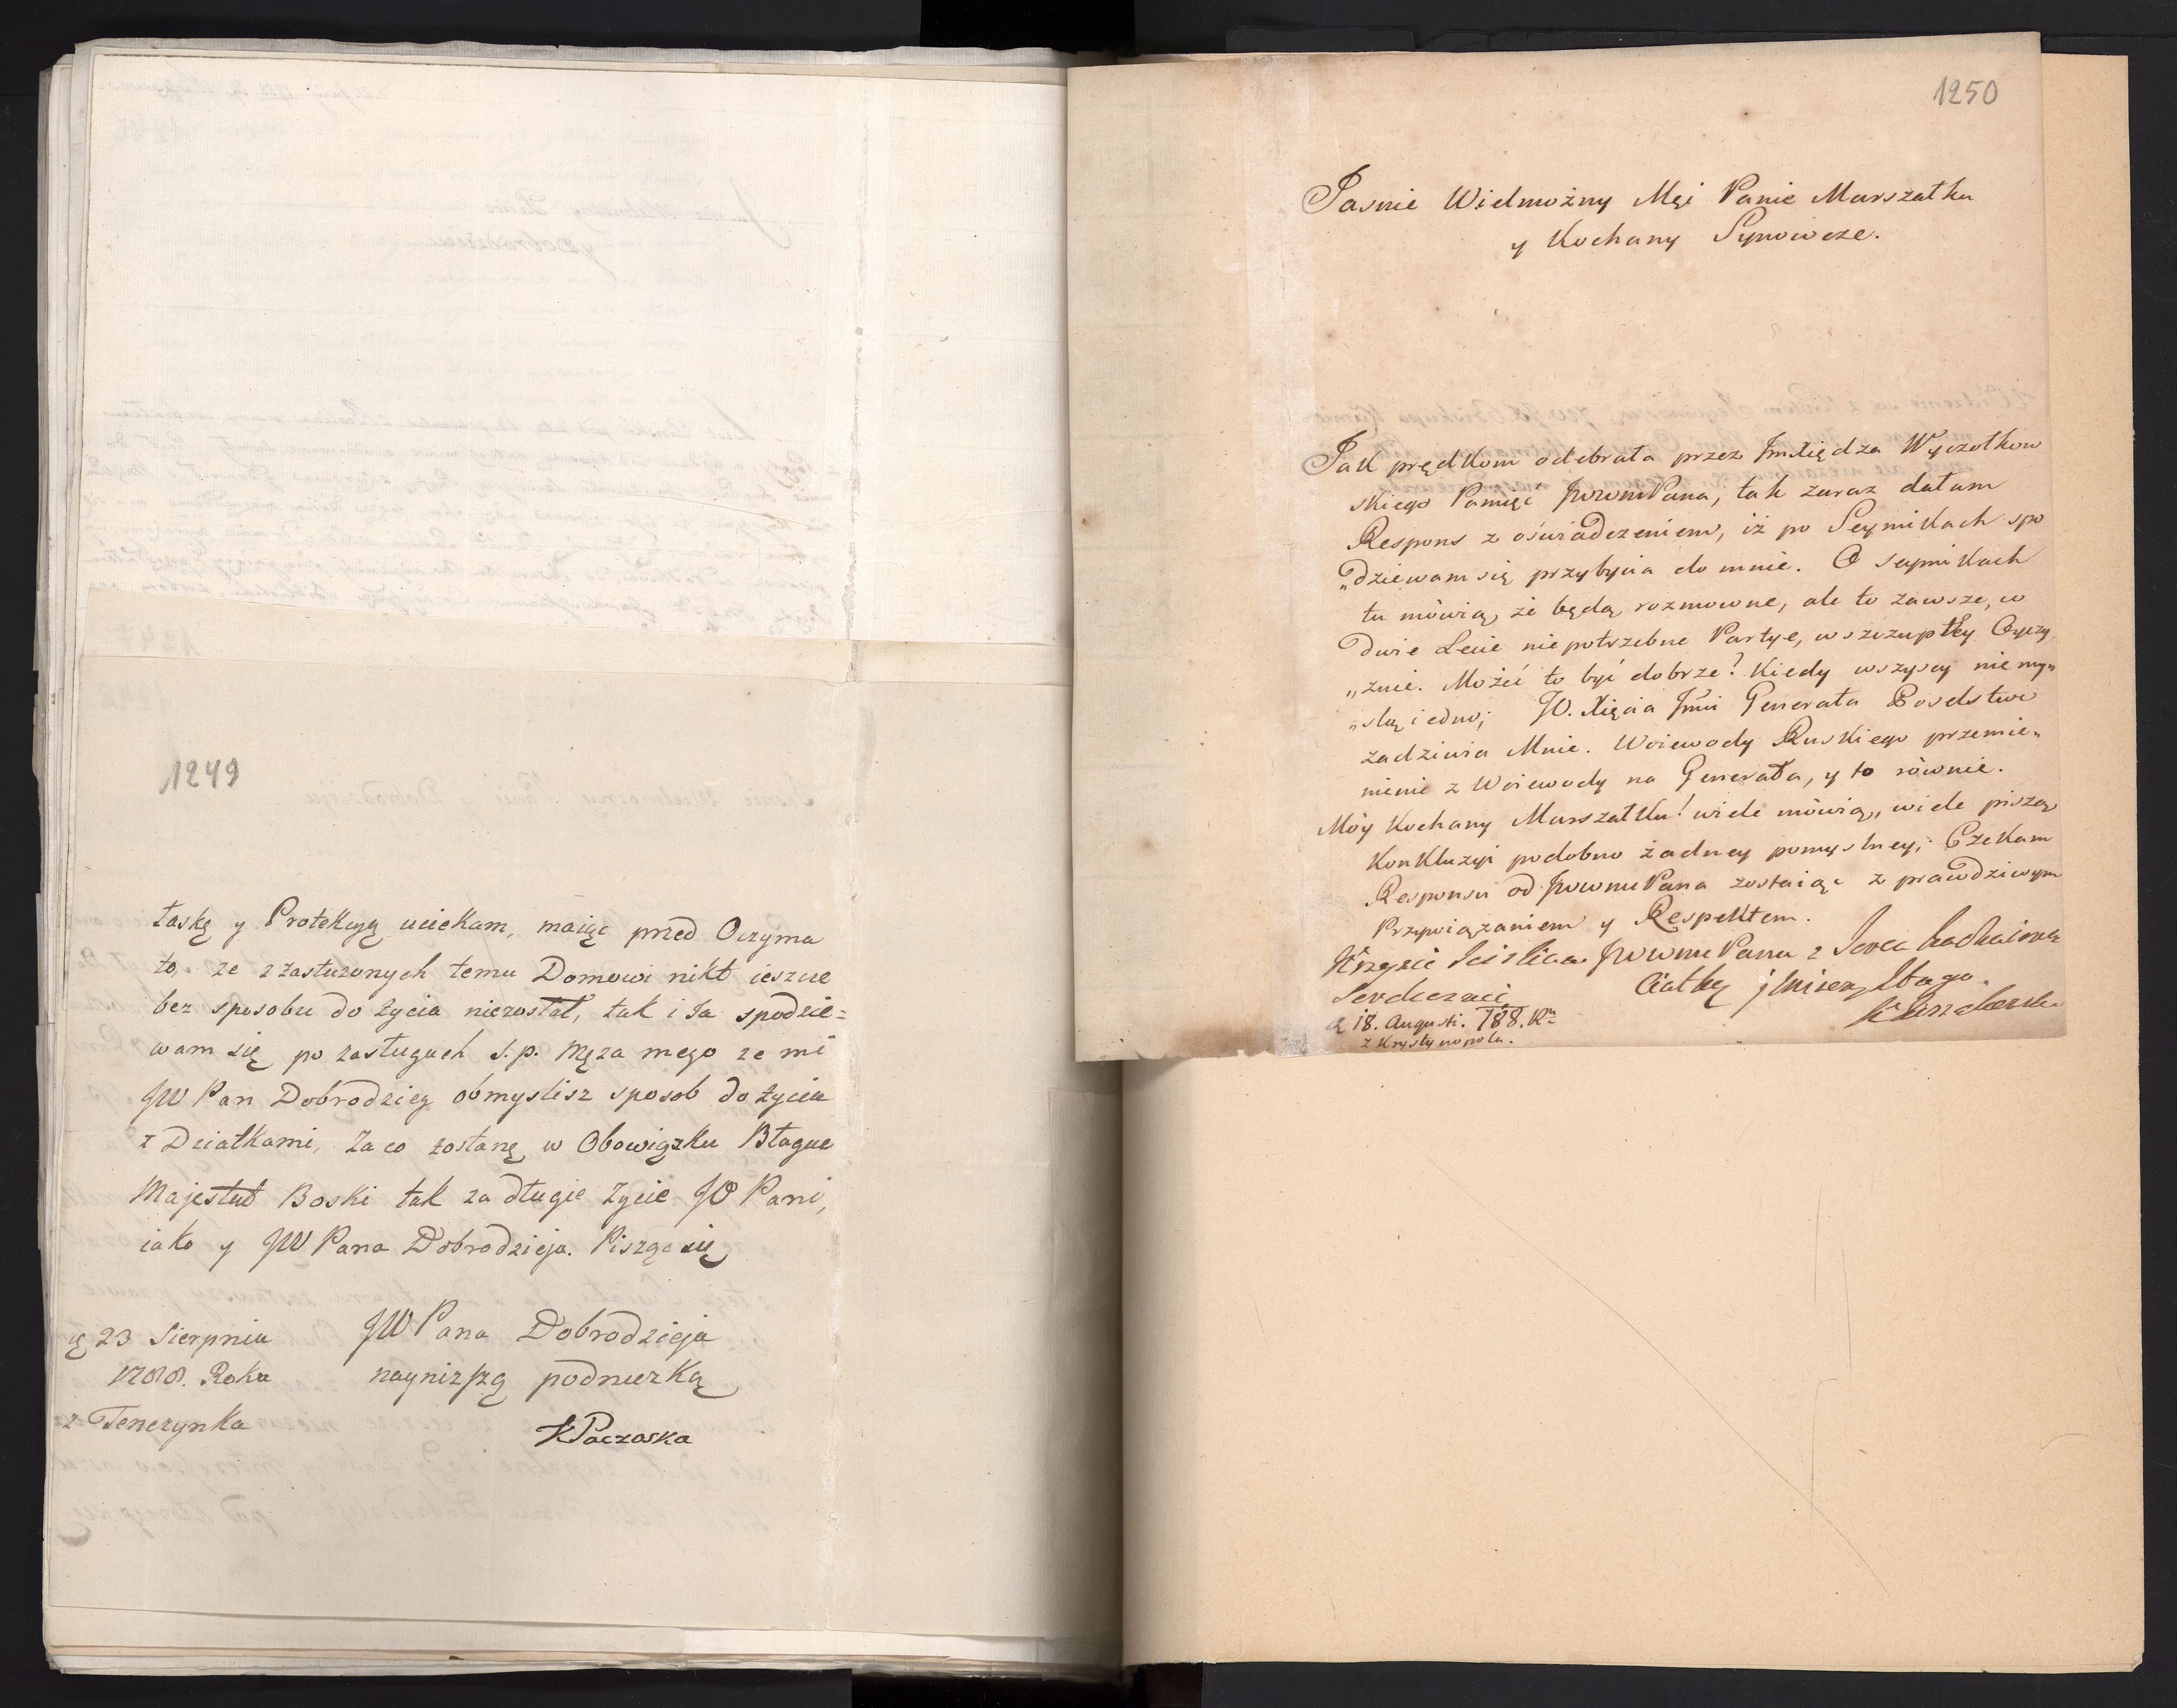 1249
łaskę y Protekcyą uciekam, maiąc przed Oczyma
to, ze z zasłuzonych temu Domowi nikt ieszcze
bez sposobu do życia niezostał, tak i Ja spodzie=
wam się po zasługach ś.p. Męza mego ze mi
JW Pan Dobrodziey obmyslisz sposob do życia
z Dziatkami, Za co zostanę w Obowiązku Błagac
Majestat Boski tak za długie Zycie JW Pani,
iako y JW Pana Dobrodzieja. Pisząc się
JW Pana Dobrodzieja
naynizszą podnuzką
K Paczoska
23 Sierpnia
1788. Roku
z Tenczynka
1250
Jasnie Wielmożny Mci Panie Marszałku
y Kochany Synowcze.
Jak prędkom odebrała przez Jm Xiędza Wyczołkow
skiego Pamięć JWWMPana, tak zaraz dałam
Respons z oświadczeniem, iż po Seymikach spo
„dziewam się przybycia do mnie. O seymikach
tu mówią, że będą rozmowne, ale to zawsze, w
dwie Lecie niepotrzebne Partye, w szczupłey Oyczy
„znie. Możeć to być dobrze? Kiedy wszyscy nie my„
„slą iedno; JO. Xięcia Jmci Generała Poselstwo
zadziwia Mnie. Woiewody Ruskiego przemie„
nienie z Woiewody na Generała, y to równie.
Móy Kochany Marszałku! wiele mówią, wiele piszą
Konkluzyi podobno żadney pomyslney; Czekam
Responsu od JWWMPana zostaiąc z prawdziwym
Przywiązaniem y Respektem.
JWWMPana z Serca kochaiącą
Ciotką i Sługą
Serdecznie
d 18. Augusti. 788. Ru
z Krystynopola.